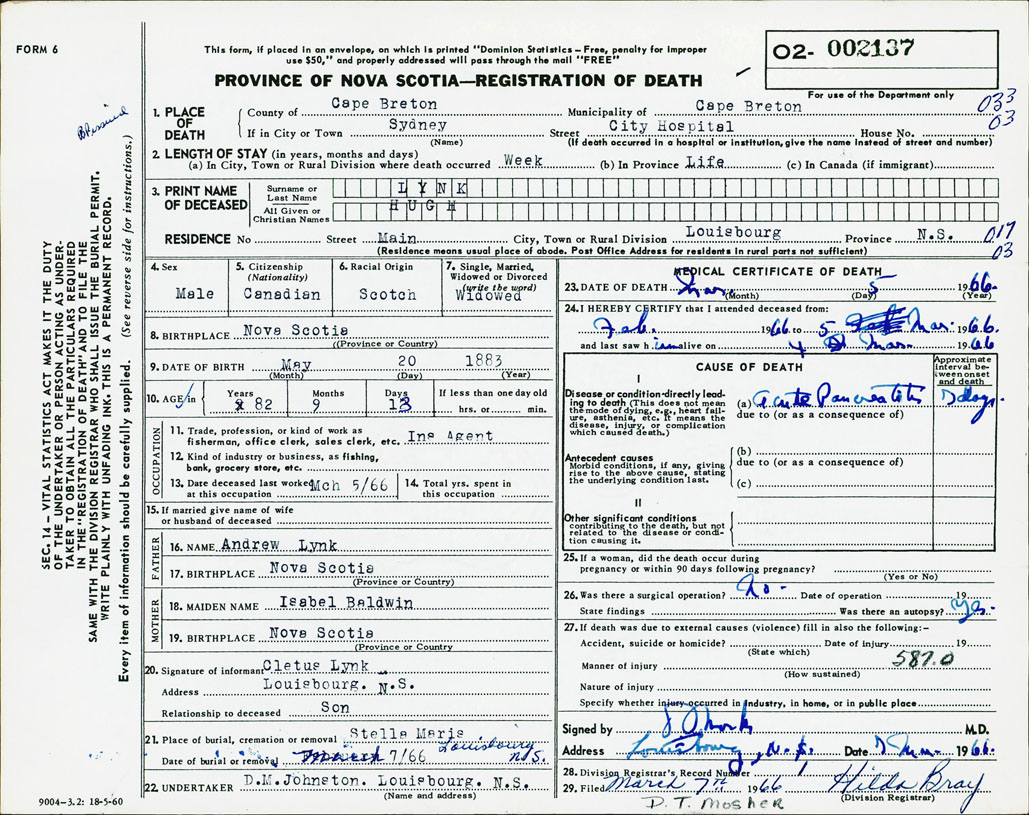 FORM 6
This form, if placed in an envelope, on which is printed "Dominion Statistics – Free, penalty for improper
use $50," and properly addressed will pass through the mail "FREE"
PROVINCE OF NOVA SCOTIA—REGISTRATION OF DEATH
02- 002137
For use of the Department only
033
03
1. PLACE OF DEATH
County of Cape Breton Municipality of Cape Breton
If in City or Town Sydney Street City Hospital House No.
(Name) (If death occurred in a hospital or institution, give the name instead of street and number)
2. LENGTH OF STAY (in years, months and days)
(a) In City, Town or Rural Division where death occurred Week (b) In Province Life (c) In Canada (if immigrant)
3. PRINT NAME OF DECEASED
Surname or Last Name LYNK
All Given or Christian Names HUGH
RESIDENCE No Street Main City, Town or Rural Division Louisbourg Province N.S.
017
03
(Residence means usual place of abode. Post Office Address for residents in rural parts not sufficient)
4. Sex
Male
5. Citizenship (Nationality)
Canadian
6. Racial Origin
Scotch
7. Single, Married, Widowed or Divorced (write the word)
Widowed
8. BIRTHPLACE Nova Scotia
(Province or Country)
9. DATE OF BIRTH May 20 1883
(Month) (Day) (Year)
10. AGE in Years 82 Months 9 Days 13 If less than one day old hrs. or min.
OCCUPATION
11. Trade, profession, or kind of work as
fisherman, office clerk, sales clerk, etc. Ins Agent
12. Kind of industry or business, as fishing,
bank, grocery store, etc.
13. Date deceased last worked at this occupation Mch 5/66
14. Total yrs. spent in this occupation
15. If married give name of wife
or husband of deceased
FATHER
16. NAME Andrew Lynk
17. BIRTHPLACE Nova Scotia
(Province or Country)
MOTHER
18. MAIDEN NAME Isabel Baldwin
19. BIRTHPLACE Nova Scotia
(Province or Country
20. Signature of informant Cletus Lynk
Address Louisbourg. N.S.
Relationship to deceased Son
21. Place of burial, cremation or removal Stella Maris
Louisbourg N.S.
Date of burial or removal March 7/66
22. UNDERTAKER D.M.Johnston. Louisbourg. N.S.
(Name and address)
MEDICAL CERTIFICATE OF DEATH
23. DATE OF DEATH Mar. 5 1966.
(Month) (Day) (Year)
24. I HEREBY CERTIFY that I attended deceased from:
Feb. 1966 to 5 Mar. 1966.
and last saw him alive on 4 Mar. 1966
CAUSE OF DEATH
Approximate interval between onset and death
I
Disease or condition directly leading to death (This does not mean the mode of dying, e.g., heart failure, asthenia, etc. It means the disease, injury, or complication which caused death.)
(a) Acute Pancreatitis 7 days.
due to (or as a consequence of)
Antecedent causes
Morbid conditions, if any, giving rise to the above cause, stating the underlying condition last.
(b)
due to (or as a consequence of)
(c)
II
Other significant conditions
contributing to the death, but not related to the disease or condition causing it.
25. If a woman, did the death occur during
pregnancy or within 90 days following pregnancy?
(Yes or No)
26. Was there a surgical operation? No - Date of operation 19
State findings Was there an autopsy? Yes -
27. If death was due to external causes (violence) fill in also the following:–
Accident, suicide or homicide? Date of injury 19
(State which)
587.0
Manner of injury
(How sustained)
Nature of injury
Specify whether injury occurred in industry, in home, or in public place
Signed by M.D.
Address Louisbourg, N.S. Date 7 Mar. 1966.
28. Division Registrar's Record Number 1
29. Filed March 7th 1966 Hilda Bray
(Division Registrar)
D.T. MOSHER
SEC. 14 – VITAL STATISTICS ACT MAKES IT THE DUTY
OF THE UNDERTAKER OR PERSON ACTING AS UNDER-
TAKER TO OBTAIN ALL THE PARTICULARS REQUIRED
IN THE "REGISTRATION OF DEATH" AND TO FILE THE
SAME WITH THE DIVISION REGISTRAR WHO SHALL ISSUE THE BURIAL PERMIT.
WRITE PLAINLY WITH UNFADING INK. THIS IS A PERMANENT RECORD.
Every item of information should be carefully supplied. (See reverse side for instructions.)
9004–3.2: 18-5-60